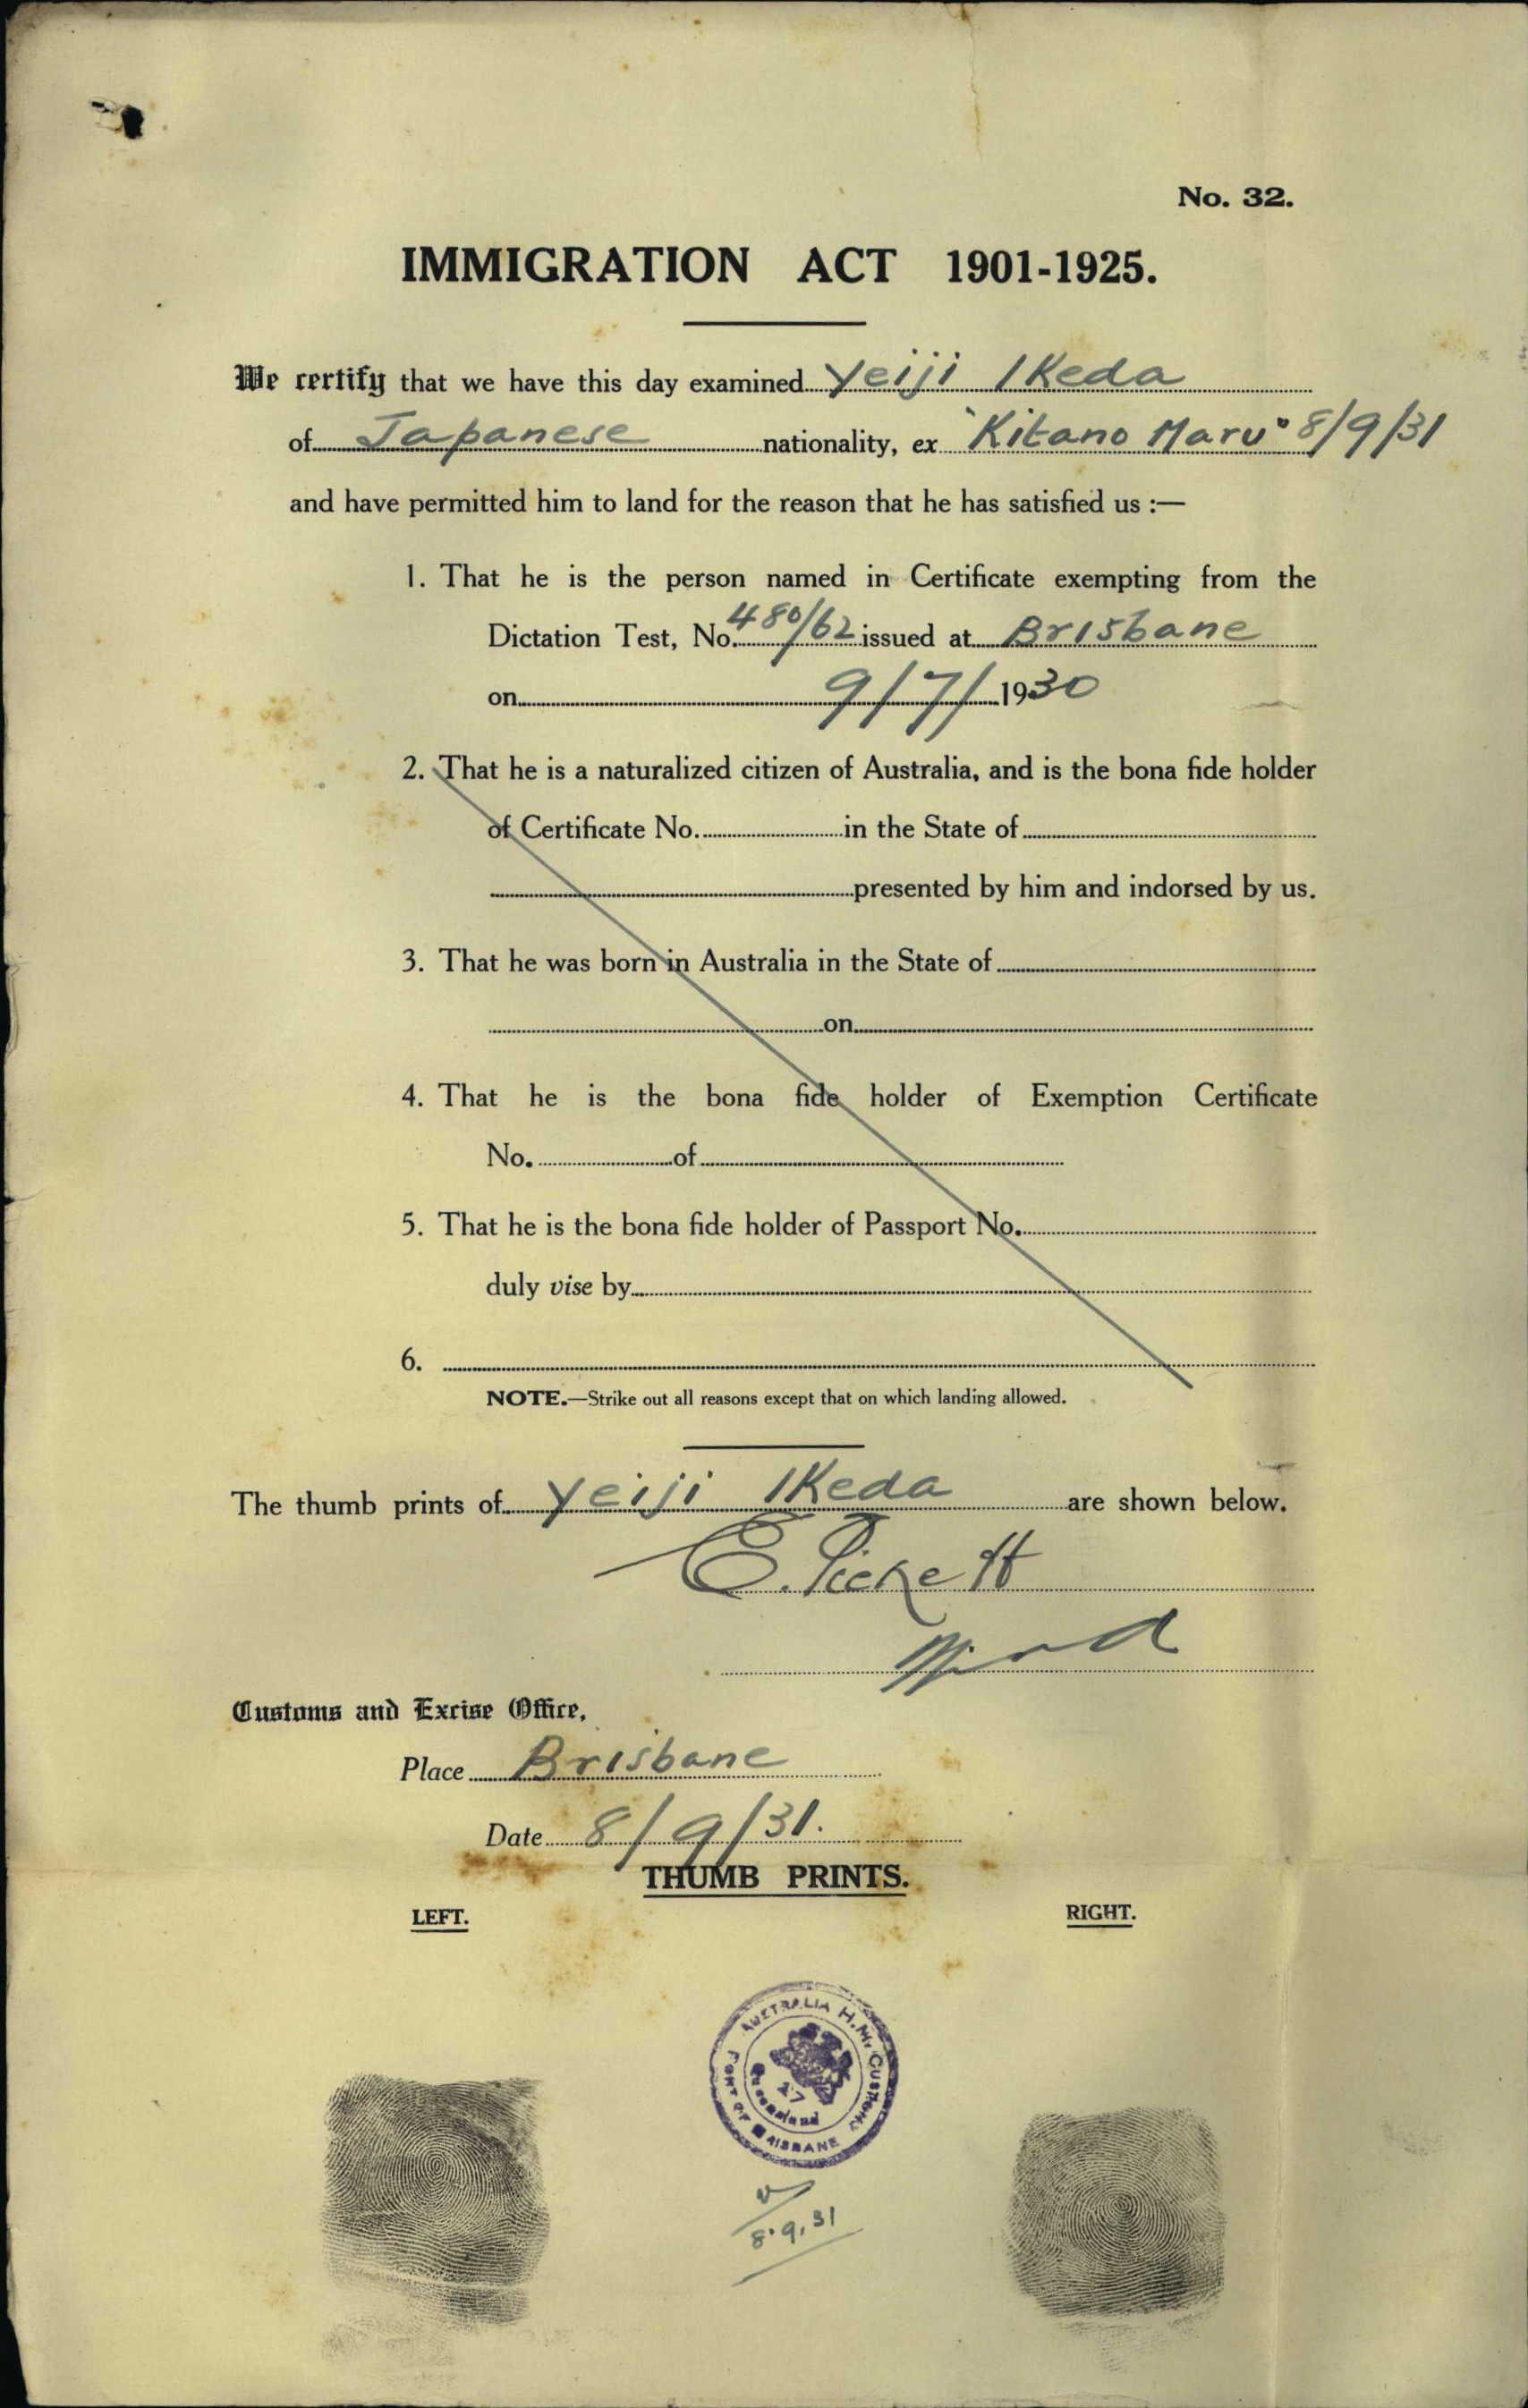 No. 32.
IMMIGRATION ACT 1901-1925.
We certify that we have this day examined Yeiji Ikeda
of Japanese nationality, ex "Kitano Maru" 8/9/31
and have permitted him to land for the reason that he has satisfied us :—
1. That he is the person named in Certificate exempting from the
Dictation Test, No. 480/62 issued at Brisbane
on 9/7/1930
2. That he is a naturalized citizen of Australia, and is the bona fide holder
of Certificate No. in the State of
presented by him and indorsed by us.
3. That he was born in Australia in the State of
on
4. That he is the bona fide holder of Exemption Certificate
No. of
5. That he is the bona fide holder of Passport No.
duly vise by
6.
NOTE.—Strike out all reasons except that on which landing allowed.
The thumb prints of Yeiji Ikeda are shown below.
E. Pickett
Customs and Excise Office,
Place Brisbane
Date 8/9/31.
THUMB PRINTS.
LEFT.
RIGHT.
AUSTRALIA H.M. CUSTOMS
PORT OF BRISBANE
Queensland
17
8.9.31